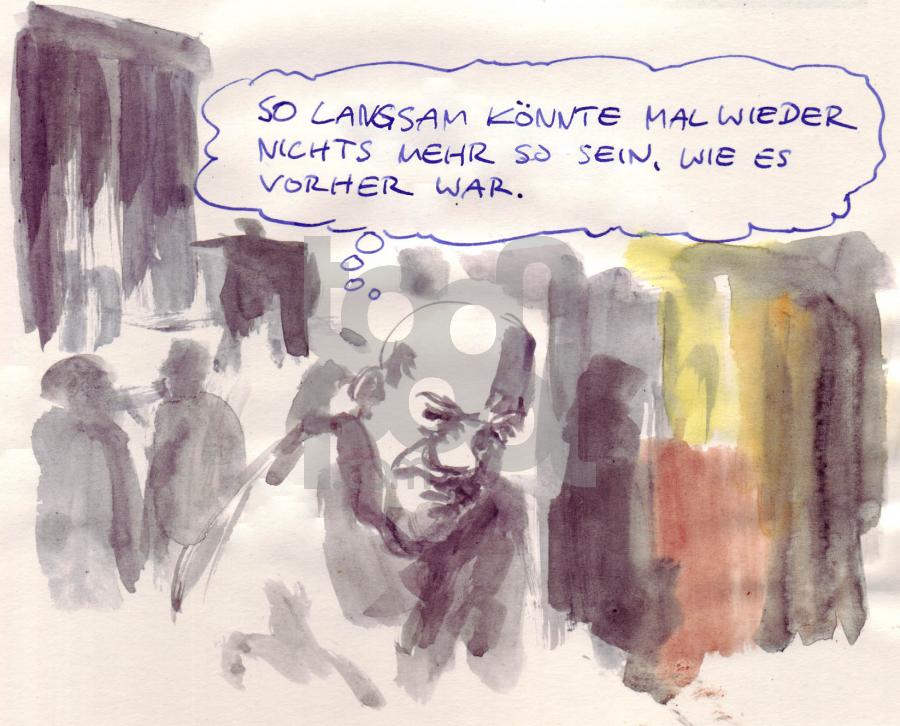 SO LANGSAM KÖNNTE MAL WIEDER
NICHTS MEHR SO SEIN, WIE ES
VORHER WAR.